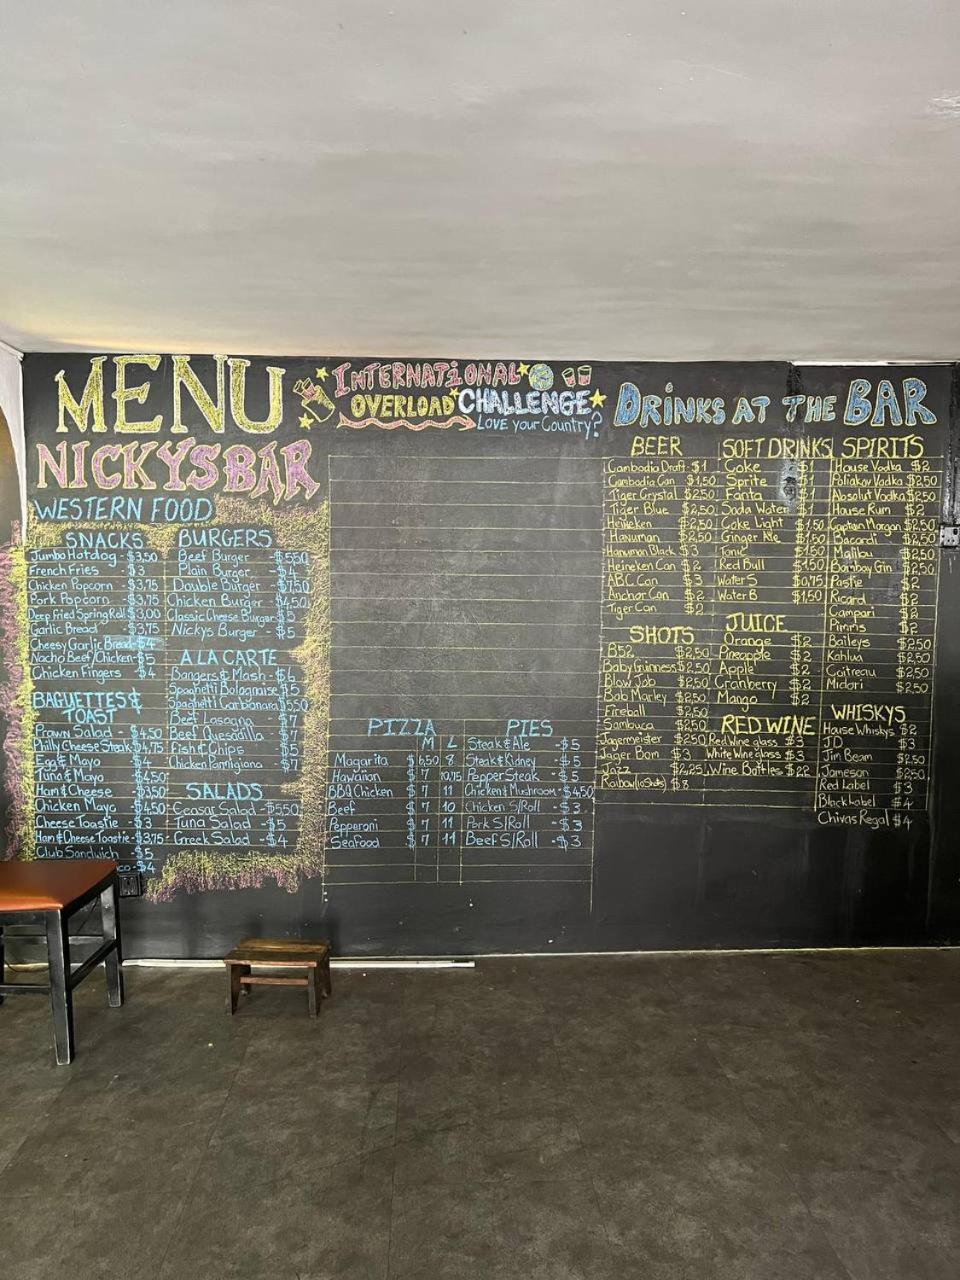 MENU
NICKYS BAR
WESTERN FOOD
SNACKS
Jumbo Hotdog - $3,50
French Fries - $3
Chicken Popcorn - $3,75
Pork Popcorn - $3,75
Deep Fried Spring Roll $3,00
Garlic Bread - $3,75
Cheesy Garlic Bread - $4
Nacho Beef/Chicken - $5
Chicken Fingers - $4
BAGUETTES &
TOAST
Prawn Salad - $4,50
Philly Cheese Steak $4,75
Egg & Mayo - $4
Tuna & Mayo - $4,50
Ham & Cheese - $3,50
Chicken Mayo - $4,50
Cheese Toastie - $3
Ham & Cheese Toastie - $3,75
Club Sandwich - $5
co - $4
BURGERS
Beef Burger - $5,50
Plain Burger - $4
Double Burger - $7,50
Chicken Burger - $4,50
Classic Cheese Burger $5
Nickys Burger - $5
A LA CARTE
Bangers & Mash - $6
Spaghetti Bolognaise $5
Spaghetti Carbonara $5,50
Beef Lasagna - $7
Beef Quesadilla - $7
Fish & Chips - $5
Chicken Parmigiana - $7
SALADS
Ceasar Salad - $5,50
Tuna Salad - $5
Greek Salad - $4
INTERNATIONAL
OVERLOAD CHALLENGE
LOVE your Country?
PIZZA
M L
Magarita $ 6,50 8
Hawaiian $ 7 10,75
BBQ Chicken $ 7 11
Beef $ 7 10
Pepperoni $ 7 11
Seafood $ 7 11
PIES
Steak & Ale - $5
Steak & Kidney - $5
Pepper Steak - $5
Chicken & Mushroom - $4,50
Chicken S/Roll - $3
Pork S/Roll - $3
Beef S/Roll - $3
DRINKS AT THE BAR
BEER
Cambodia Draft - $1
Cambodia Can $1,50
Tiger Crystal $2,50
Tiger Blue $2,50
Heineken $2,50
Hanuman $2,50
Hanuman Black $3
Heineken Can $2
ABC Can $3
Anchor Can $2
Tiger Can $2
SHOTS
B52 $2,50
Baby Guinness $2,50
Blow Job $2,50
Bob Marley $2,50
Fireball $2,50
Sambuca $2,50
Jagermeister $2,50
Jager Bom $3
Jazz $2,25
Raibow (10 Shots) $8
SOFT DRINKS
Coke $1
Sprite $1
Fanta $1
Soda Water $1
Coke Light $1,50
Ginger Ale $1,50
Tonic $1,50
Red Bull $1,50
Water S $0,75
Water B $1,50
JUICE
Orange $2
Pineapple $2
Apple $2
Cranberry $2
Mango $2
RED WINE
Red Wine glass $3
White Wine glass $3
Wine Bottles $22
SPIRITS
House Vodka $2
Poliakov Vodka $2,50
Absolut Vodka $2,50
House Rum $2
Captain Morgan $2,50
Bacardi $2,50
Malibu $2,50
Bombay Gin $2,50
Pastie $2
Ricard $2
Campari $2
Pimms $2
Baileys $2,50
Kahlua $2,50
Coitreau $2,50
Midori $2,50
WHISKYS
House Whiskys $2
JD $3
Jim Beam $2,50
Jameson $2,50
Red Label $3
Black Label $4
Chivas Regal $4